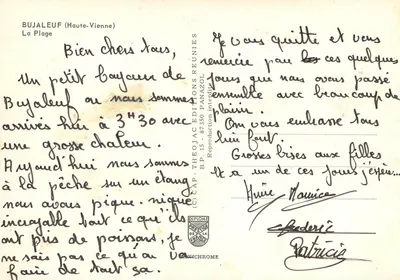 BUJALEUF (Haute-Vienne)
La Plage
Bien chers tous,
Un petit bonjour de
Bujaleuf ou nous sommes
arrivés hier à 3H30 avec
une grosse chaleur.
Aujourd'hui nous sommes
à la pêche sur un étang
nous avons pique-niqué
incroyable tout ce qu'ils
ont pris de poissons, je
ne sais pas ce qu'on va
faire de tout ça.
(C) CAP-THEOJAC EDITIONS REUNIES
B.P. 15 - 87350 PANAZOL
Reproduction interdite
CHROME
Je vous quitte et vous
remercie pour ces quelques
jours que nous avons passé
ensemble avec beaucoup de
plaisir.
On vous embrasse tous
bien fort.
Grosses bises aux filles
et a un de ces jours j'espère...
Maurice
Frederic
Patricia